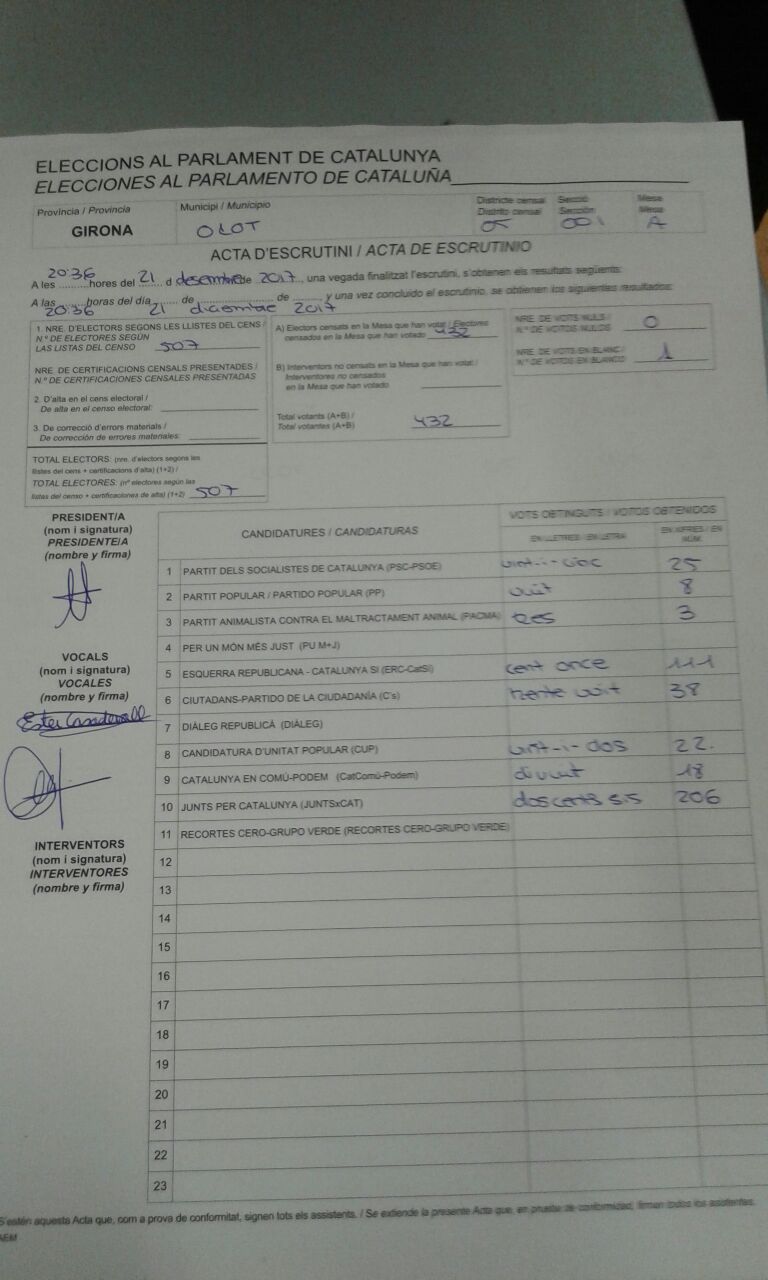 ELECCIONS AL PARLAMENT DE CATALUNYA
ELECCIONES AL PARLAMENTO DE CATALUÑA
Província / Provincia
Municipi / Municipio
Districte censal
Distrito censal
Secció
Sección
Mesa
Mesa
GIRONA
OLOT
05
001
A
ACTA D'ESCRUTINI / ACTA DE ESCRUTINIO
A les 20:36 hores del 21 d desembre de 2017, una vegada finalitzat l'escrutini, s'obtenen els resultats següents:
A las 20:36 horas del día 21 de diciembre de 2017 y una vez concluido el escrutinio, se obtienen los siguientes resultados:
1. NRE. D'ELECTORS SEGONS LES LLISTES DEL CENS /
N.º DE ELECTORES SEGÚN
LAS LISTAS DEL CENSO 507
NRE. DE CERTIFICACIONS CENSALS PRESENTADES /
N.º DE CERTIFICACIONES CENSALES PRESENTADAS
2. D'alta en el cens electoral /
De alta en el censo electoral:
3. De correcció d'errors materials /
De corrección de errores materiales:
TOTAL ELECTORS: (nre. d'electors segons les
llistes del cens + certificacions d'alta) (1+2) /
TOTAL ELECTORES: (nº electores según las
listas del censo + certificaciones de alta) (1+2) 507
A) Electors censats en la Mesa que han votat / Electores
censados en la Mesa que han votado 432
B) Interventors no censats en la Mesa que han votat /
Interventores no censados
en la Mesa que han votado
Total votants (A+B) /
Total votantes (A+B) 432
NRE. DE VOTS NULS /
N.º DE VOTOS NULOS 0
NRE. DE VOTS EN BLANC /
N.º DE VOTOS EN BLANCO 1
PRESIDENT/A
(nom i signatura)
PRESIDENTE/A
(nombre y firma)
VOCALS
(nom i signatura)
VOCALES
(nombre y firma)
Ester
INTERVENTORS
(nom i signatura)
INTERVENTORES
(nombre y firma)
CANDIDATURES / CANDIDATURAS
VOTS OBTINGUTS / VOTOS OBTENIDOS
EN LLETRES / EN LETRA
EN XIFRES / EN NÚM.
1 PARTIT DELS SOCIALISTES DE CATALUNYA (PSC-PSOE) vint-i-cinc 25
2 PARTIT POPULAR / PARTIDO POPULAR (PP) vuit 8
3 PARTIT ANIMALISTA CONTRA EL MALTRACTAMENT ANIMAL (PACMA) tres 3
4 PER UN MÓN MÉS JUST (PU M+J)
5 ESQUERRA REPUBLICANA - CATALUNYA SÍ (ERC-CatSí) cent once 111
6 CIUTADANS-PARTIDO DE LA CIUDADANÍA (C's) trente vuit 38
7 DIÀLEG REPUBLICÀ (DIÀLEG)
8 CANDIDATURA D'UNITAT POPULAR (CUP) vint-i-dos 22.
9 CATALUNYA EN COMÚ-PODEM (CatComú-Podem) divuit 18
10 JUNTS PER CATALUNYA (JUNTSxCAT) doscents sis 206
11 RECORTES CERO-GRUPO VERDE (RECORTES CERO-GRUPO VERDE)
12
13
14
15
16
17
18
19
20
21
22
23
S'estén aquesta Acta que, com a prova de conformitat, signen tots els assistents. / Se extiende la presente Acta que, en prueba de conformidad, firman todos los asistentes.
AEM